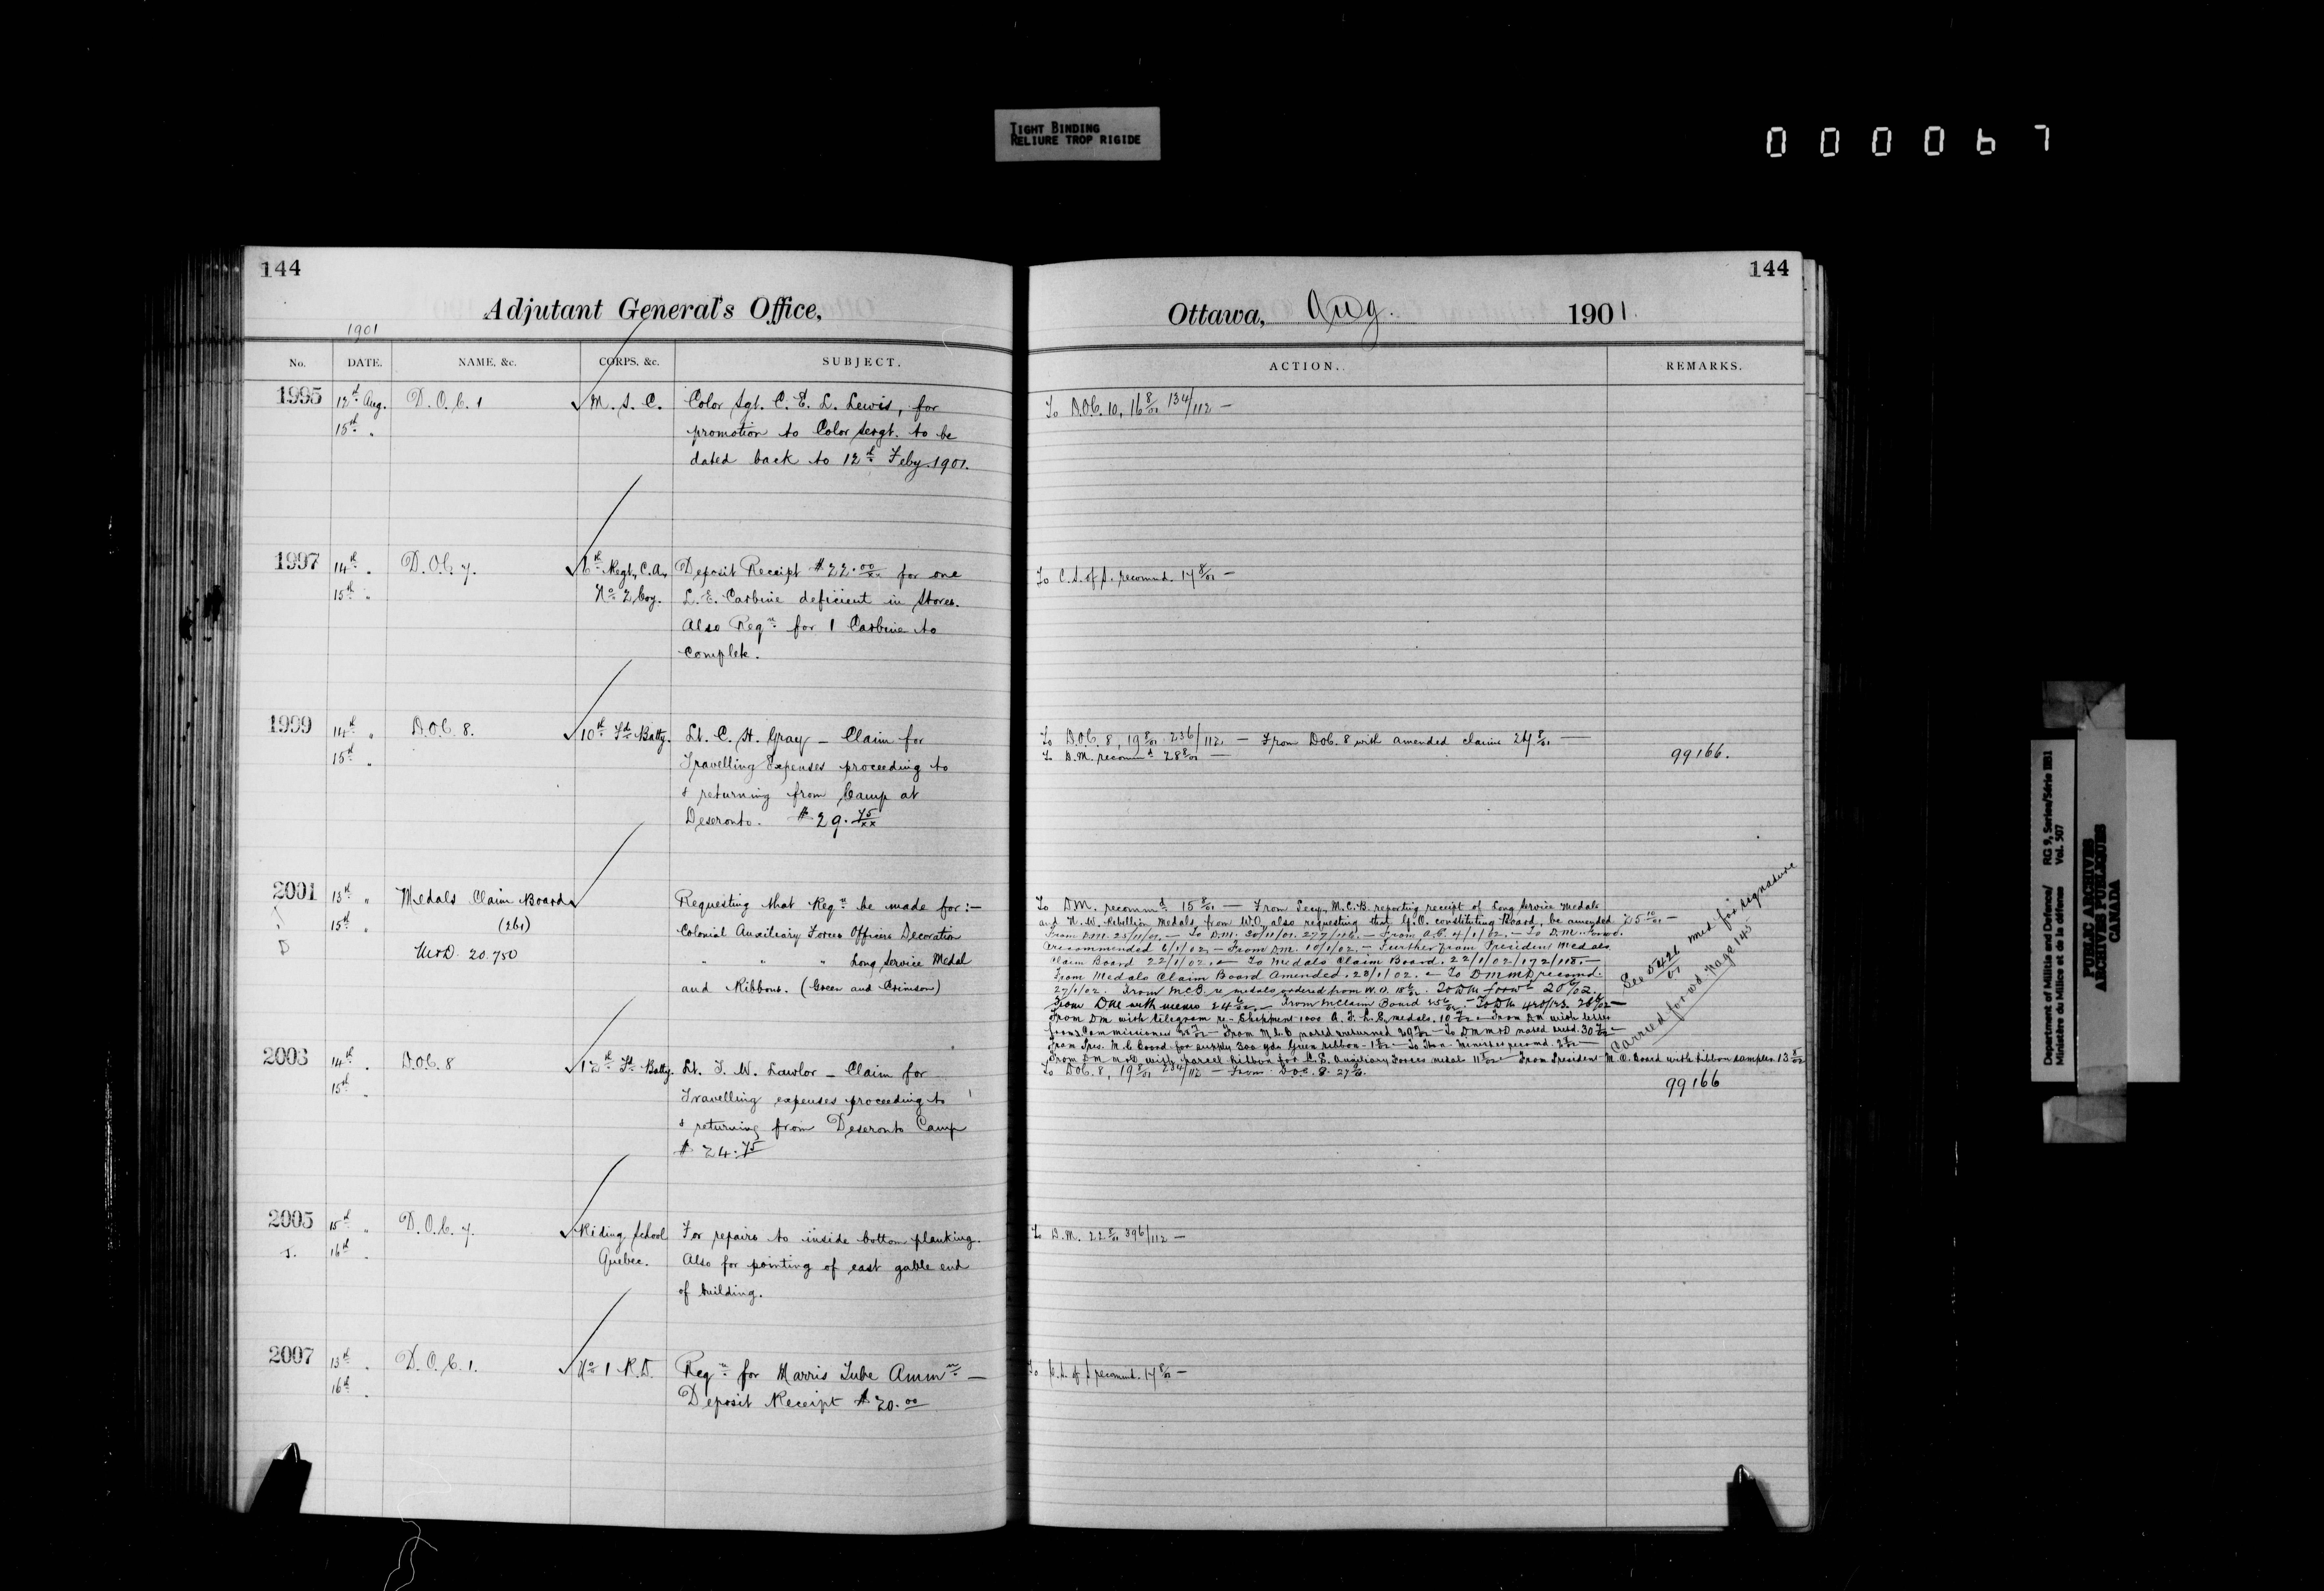 TIGHT BINDING
RELIURE TROP RIGIDE
000067
144
Adjutant General's Office,
1901
No. DATE. NAME, &c. CORPS, &c. SUBJECT.
1995 12th Aug. D.O.C. 1 M.S.C. Color Sgt. C. E. L. Lewis, for
15th " promotion to Color Sergt. to be
dated back to 12th Feby. 1901.
1997 14th " D.O.C. 7. 6th Regt. C.A., Deposit Receipt $22.00/xx for one
15th " No 2 Coy. L.E. Carbine deficient in Stores.
Also Reqn for 1 Carbine to
complete.
1999 14th " D.O.C. 8. 10th Fd Batty. Lt. C. H. Gray – Claim for
15th " Travelling Expenses proceeding to
& returning from Camp at
Deseronto. $29.75/xx
2001 13th " Medals Claim Board Requesting that Reqn be made for:–
15th " (261) Colonial Auxiliary Forces Officers Decoration
M&D. 20.750 " " " Long Service Medal
and Ribbons. (Green and Crimson)
2003 14th " D.O.C. 8 12th Fd Batty. Lt. T. W. Lawlor – Claim for
15th " Travelling expenses proceeding to
& returning from Deseronto Camp
$24.75
2005 15th " D.O.C. 7. Riding School For repairs to inside bottom planking.
J. 16th " Quebec. Also for pointing of east gable end
of building.
2007 13th " D.O.C. 1. No 1 R.D. Reqn for Morris Tube Ammn –
16th " Deposit Receipt $20.00
144
Ottawa, Aug. 1901.
ACTION. REMARKS.
To D.O.C. 10, 16 8/01 134/112 –
To C.S. of S. recommd. 17 8/01 –
To D.O.C. 8, 19 8/01 236/112. – From D.O.C. 8 with amended claim 24 8/01 –
To D.M. recommd 28 8/01 – 99166.
To D.M. recommd 15 8/01 – From Secy. M.C.B. reporting receipt of Long Service Medals
and N.W. Rebellion Medals from W.O. also requesting that G.O. constituting Board, be amended 25 10/01 –
From D.M. 25/11/01. – To D.M. 30/11/01. 277/116. – From A.G. 4/1/02. – To D.M.
recommended 6/1/02. – From D.M. 10/1/02. – Further from President Medals
Claim Board 22/1/02. – To Medals Claim Board. 22/1/02/172/118. –
From Medals Claim Board Amended. 23/1/02. – To DMMD recomd.
27/1/02. From MCB. re medals ordered from W.O. 18 6/02. To DM 20 6/02.
From DM with memo 24 6/02. – From MClaim Board 25 6/02. – To DM 420/123. 26 6/02 –
From DM with telegram re – Shipment 1000 A.F.L.S. medals. 10 7/02 – From DM with letter
from Commissioner – From M.C.B noted & returned 29 7/02 – To DMM&D noted retd. 30 7/02 –
From Pres. M.C. Board for supply 300 yds Green ribbon – 1 8/02 – To Hon. Minister recomd. 2 8/02 –
From DM M&D with parcel Ribbon for L.S. Auxiliary Forces medal 11 8/02 – From President M.C. Board with ribbon samples. 13 8/02
See 5426/01 Med. for signature
Carried forwd Page 145
To D.O.C. 8, 19 8/01 234/112 – From D.O.C. 8. 27 8/01.
99166
To D.M. 22 8/01 396/112 –
To C.S. of S recommd. 17 8/01 –
Department of Militia and Defence/ RG 9, Series/Série IIB1
Ministère du Milice et de la défense Vol. 507
PUBLIC ARCHIVES
ARCHIVES PUBLIQUES
CANADA